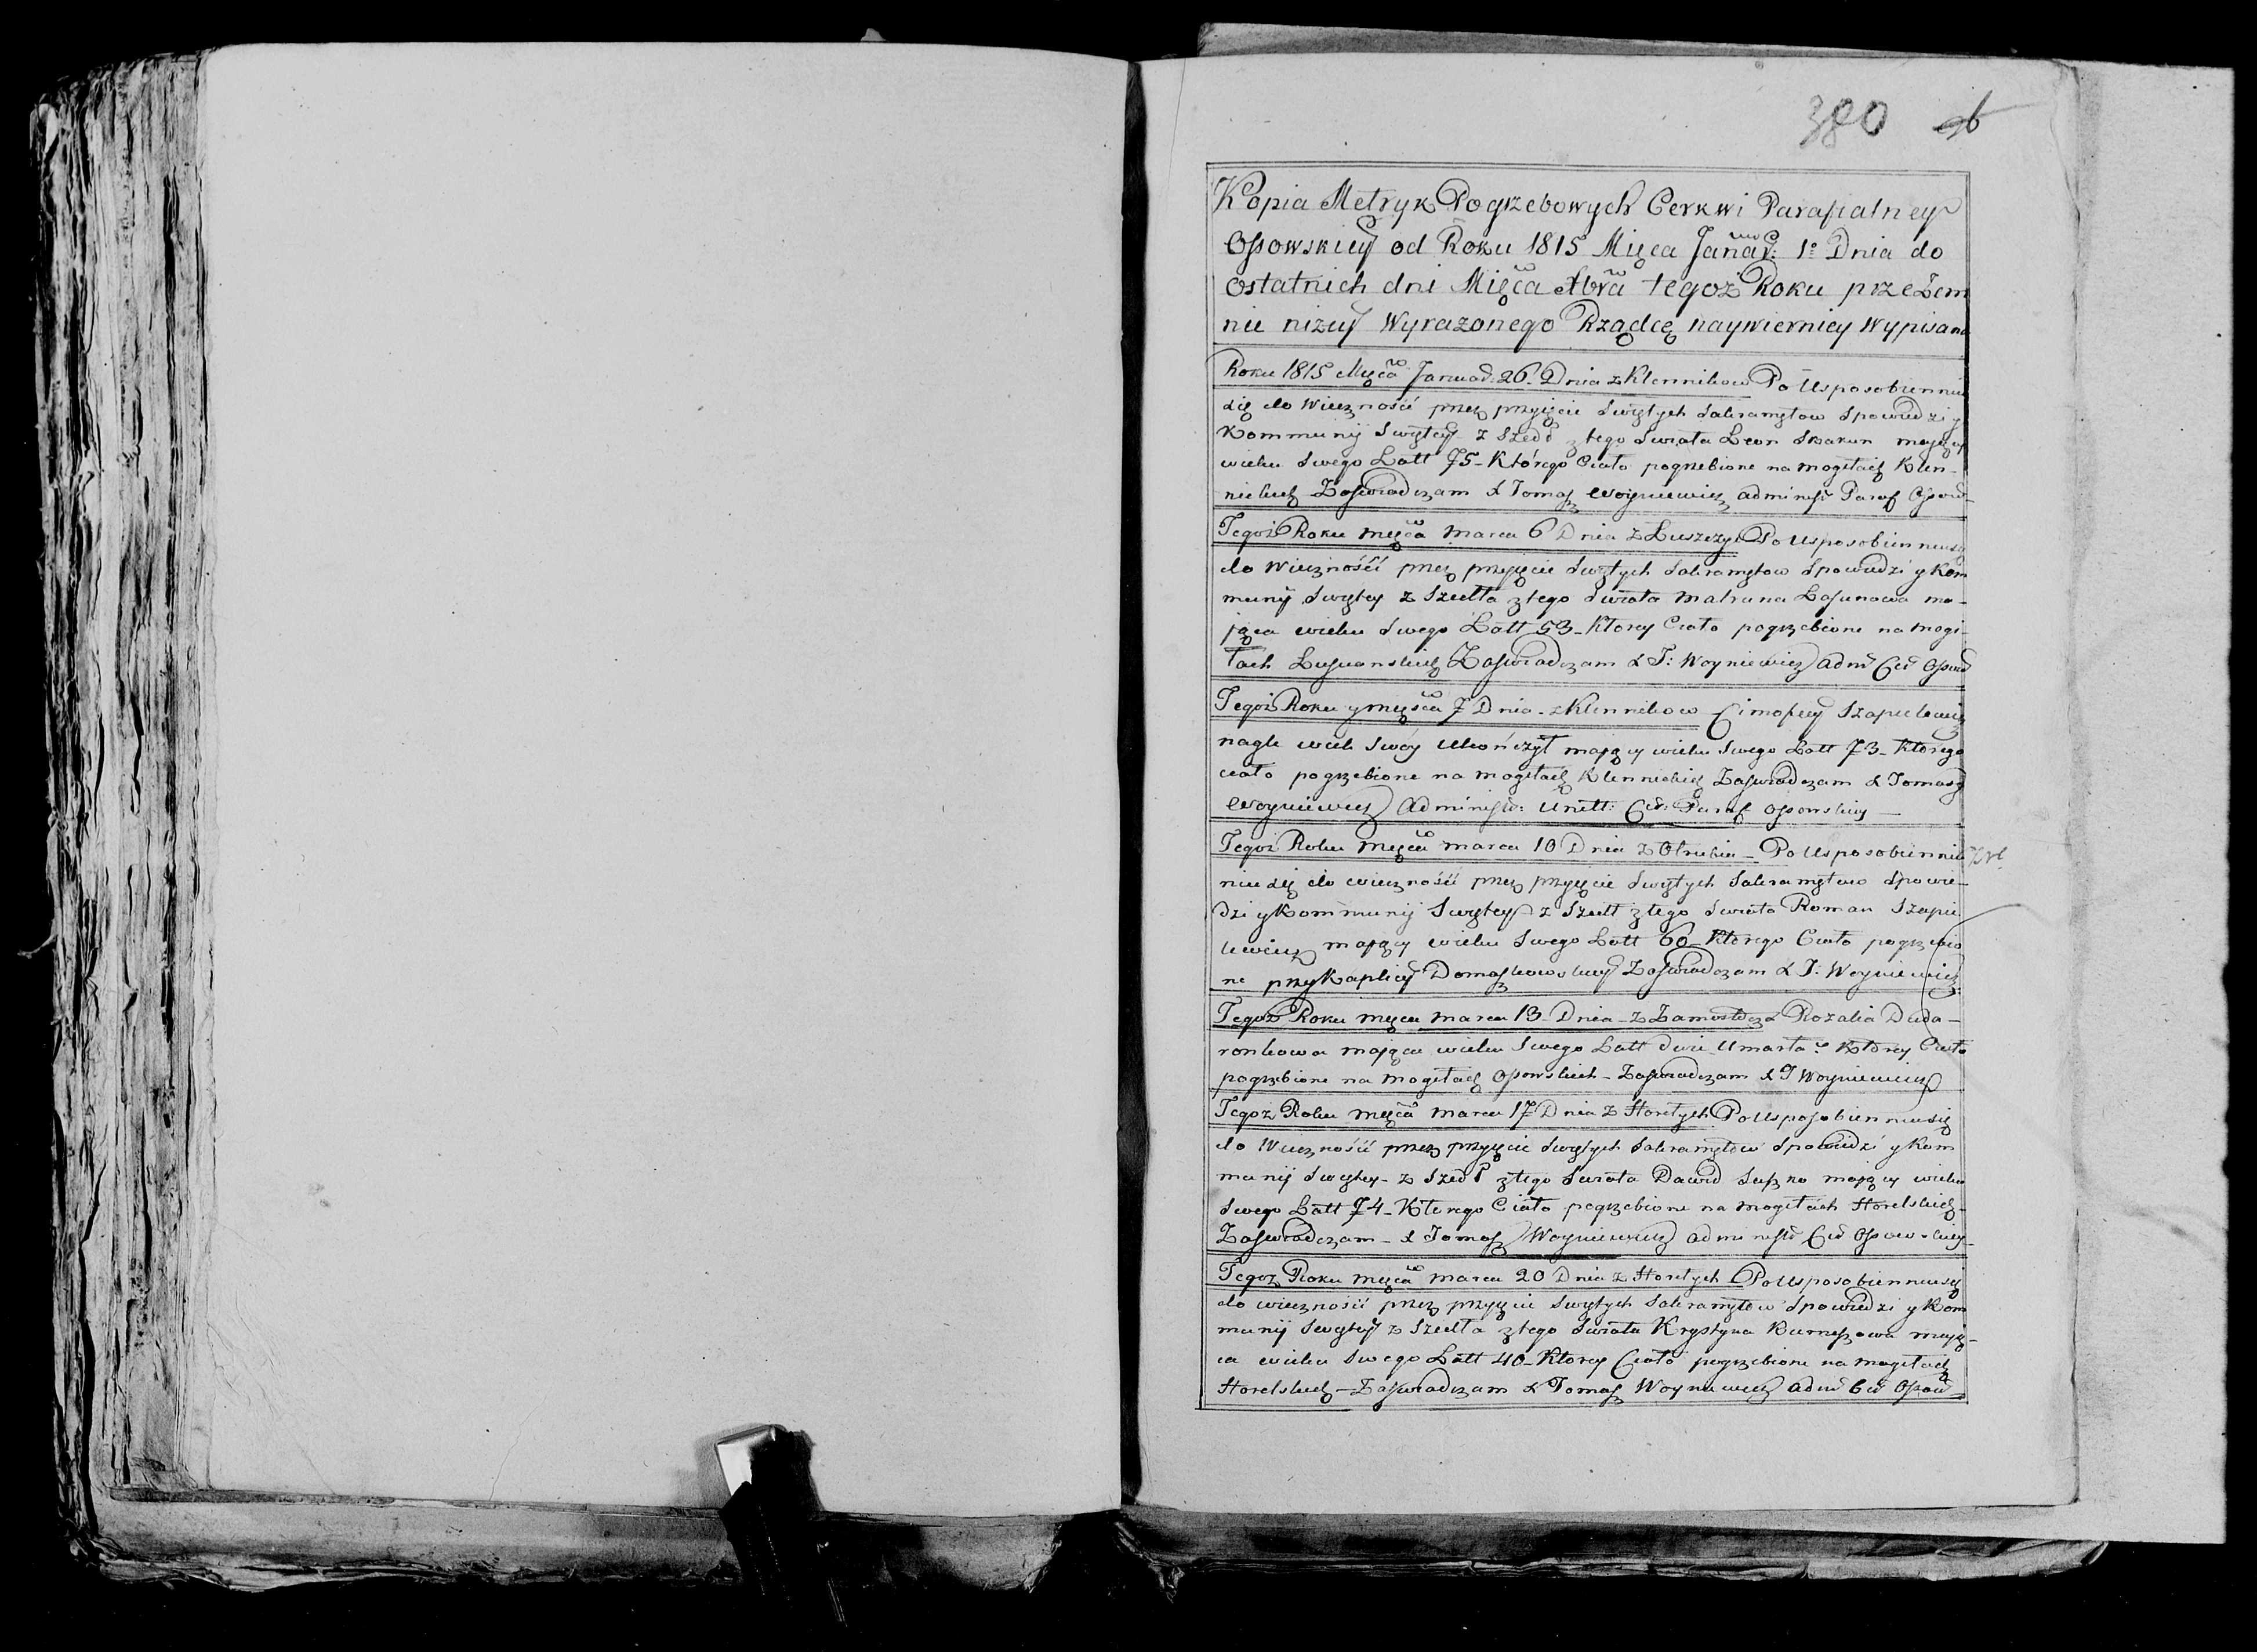 380 96
Kopia Metryk Pogrzebowych Cerkwi Parafialney
Ossowskiey od Roku 1815 Mięca Januar: 1º Dnia do
Ostatnich dni Mięca Xbra tegoż Roku przezem
nie niżey Wyrażonego Rządcę naywierniey Wypisana
Roku 1815 Mięca Januar. 26. Dnia z Klennikow Po Usposobienniu
się do Wiecznośći przez przyięcie Swiętych Sakramętow Spowiedzi y
Kommunij Swiętey z Szedł z tego Swiata Leon Skakun maiący
wieku Swego Latt 75 - Którego Ciało pogrzebione na mogiłach Klen-
nickich Zaswiadczam X Tomasz Woyniewicz administr Paraf Ossow-
Tegoż Roku mięca marca 6 Dnia z Luszczyk Po Usposobienniu się
do Wiecznośći przez przyięcie Swiętych Sakramętow Spowiedzi y Kom
munij Swiętey z Szedła z tego Swiata Matruna Łasunowa ma-
jąca wieku Swego Latt 53 - Ktorey Ciało pogrzebione na mogi-
łach Zaswiadczam X T: Woyniewicz adm Cer Ossow
Tegoż Roku y mięsca 7 Dnia - z Klennikow Cimofiey Szapielewicz
nagle wiek Swóy Ukończył mający wieku Swego Latt 73 - Ktorego
ciało pogrzebione na mogiłach Klennickich Zaswiadczam X Tomasz
Woyniewicz Administr: Unitt: Cer: Paraf Ossowskiey
Tegoż Roku mięca marca 10 Dnia z Otrubia - Po Usposobienniu
niu się do wiecznośći przez przyięcie Swiętych Sakramętow Spowie-
dzi y Kommunij Swiętey z Szedł z tego Swiata Roman Szapie
lewicz mający wieku Swego Latt 60 - Ktorego Ciało pogrzebio
ne przy Kaplicy Domaszkowskiey Zaswiadczam X T: Woyniewicz
Tegoż Roku mięca marca 13 - Dnia - z Zamostocza Rozalia Duda-
ronkowa mająca wieku Swego Latt dwie Umarła: Ktorey Ciało
pogrzebione na mogiłach Ossowskich - Zaswiadczam X T Woyniewicz
Tegoż Roku mięca marca 17 Dnia z Horełych Po Usposobienniu się
do Wiecznośći przez przyięcie Swiętych Sakramętow Spowiedzi y Kom
munij Swiętey - z Szedł z tego Swiata Dawid Suszko mający wieku
Swego Latt 74 - Ktorego Ciało pogrzebione na mogiłach Horelskich -
Zaswiadczam - X Tomasz Woyniewicz administr Cer Ossowskiey -
Tegoż Roku mięca marca 20 Dnia z Horełych Po Usposobienniu się
do wiecznośći przez przyięcie Swiętych Sakramętow Spowiedzi y Kom
munij Swiętey z Szedła z tego Swiata Krystyna mają-
ca wieku Swego Latt 40 - Ktorey Ciało pogrzebione na mogiłach
Horelskich - Zaswiadczam X Tomasz Woyniewicz adm Cer Ossow